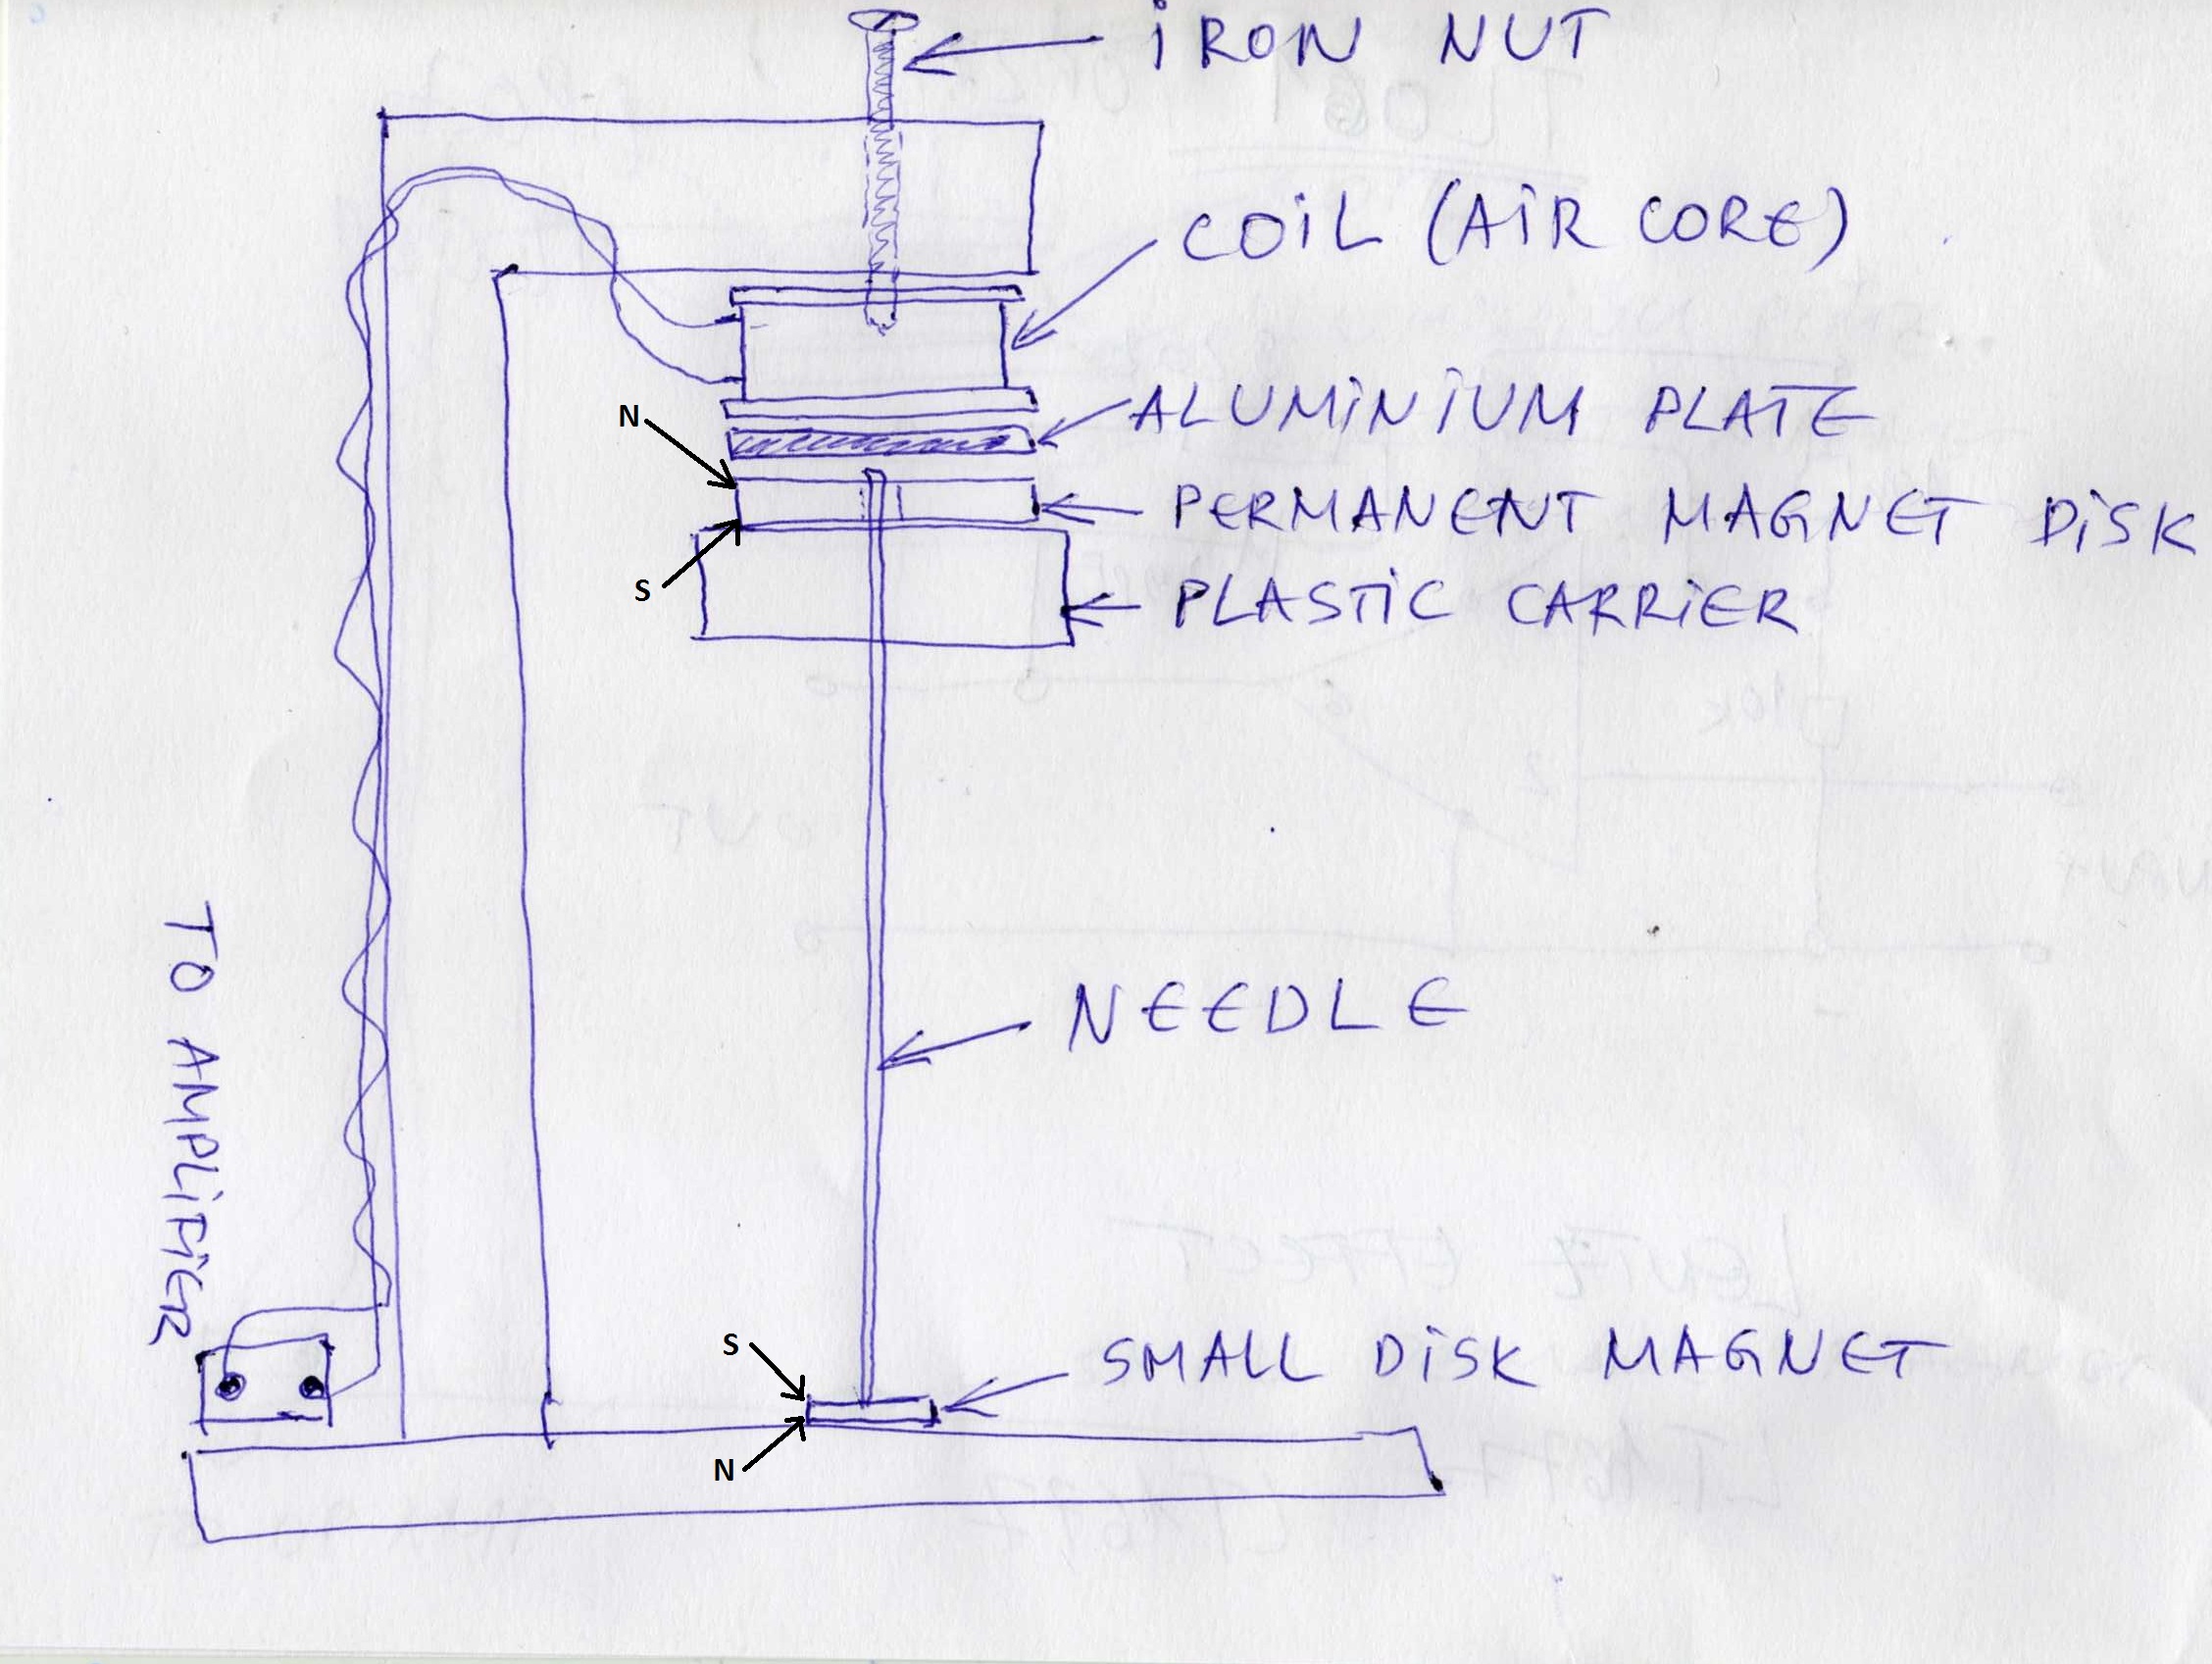 iRON NUT
COiL (AiR CORE)
ALUMiNiUM PLATE
N
PERMANENT MAGNET DiSK
S
PLASTiC CARRiER
NEEDLE
TO AMPLiFiER
S
SMALL DiSK MAGNET
N